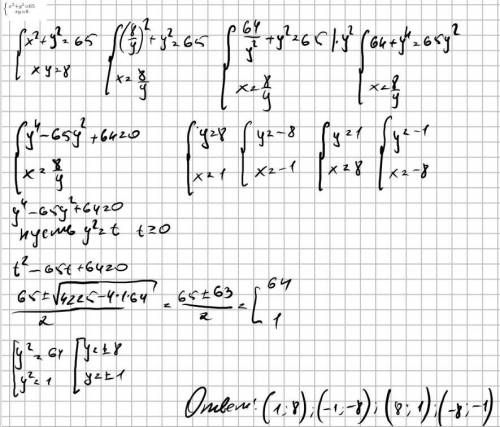 {x²+y²=65 xy=8
{x²+y²=65 xy=8 {(8/y)²+y²=65 x=8/y {64/y²+y²=65 |·y² x=8/y {64+y⁴=65y² x=8/y
{y⁴-65y²+64=0 x=8/y {y=8 x=1 {y=-8 x=-1 {y=1 x=8 {y=-1 x=-8
y⁴-65y²+64=0
пусть y²=t t≥0
t²-65t+64=0
(65±√(4225-4·1·64))/2 = (65±63)/2 = [64 1
[y²=64 y²=1 [y=±8 y=±1
Ответ: (1;8);(-1;-8);(8;1);(-8;-1)